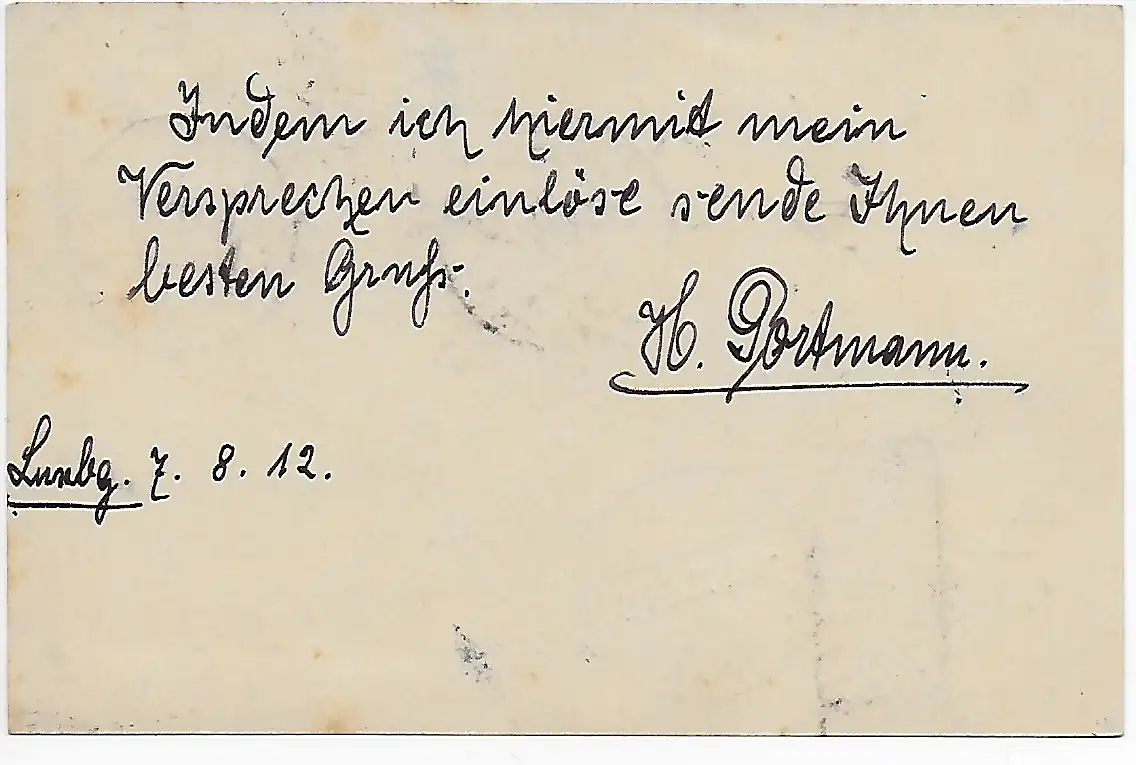 Indem ich hiermit mein
Versprechen einlöse sende Ihnen
besten Gruß.
H. Portmann.
Luxbg. 7. 8. 12.